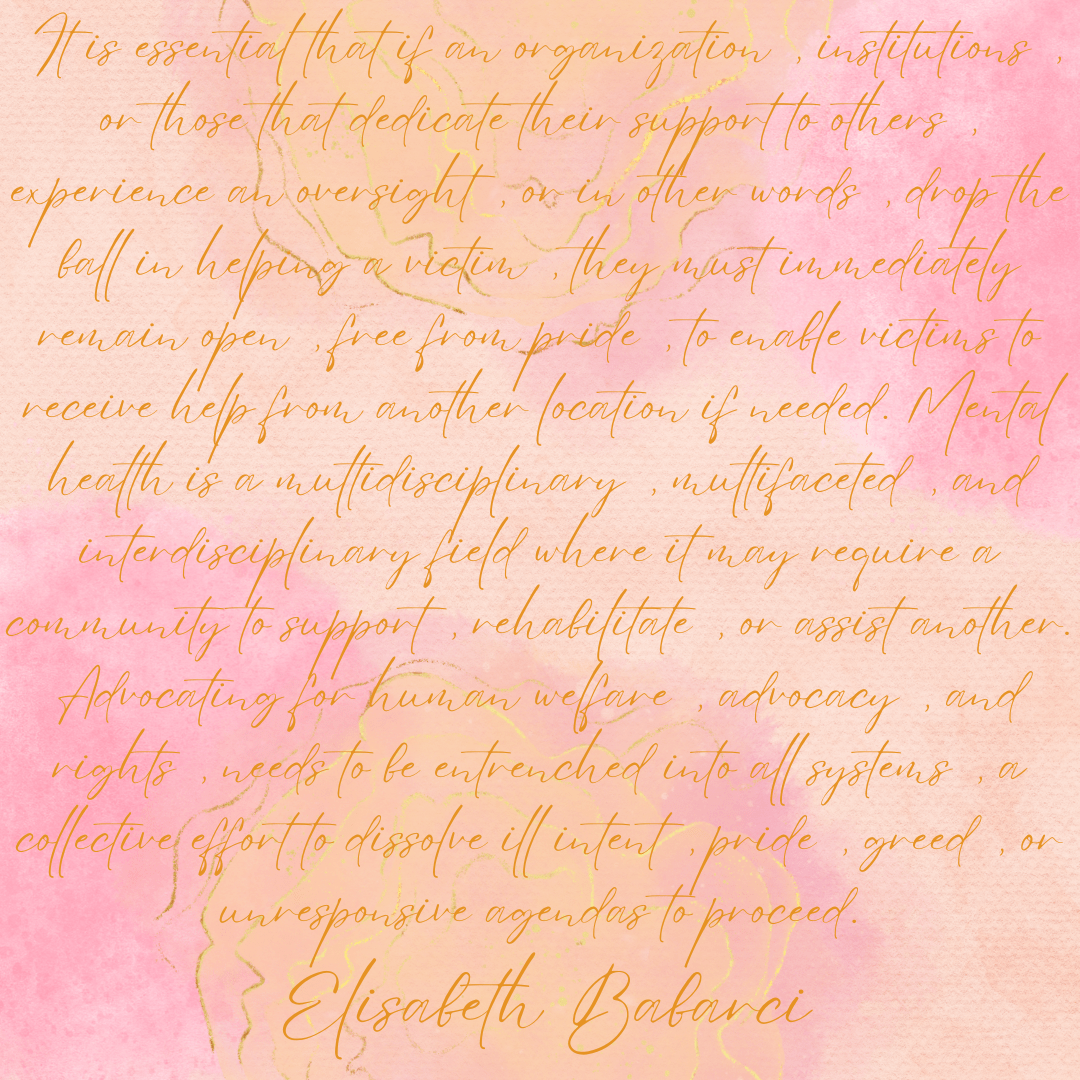 It is essential that if an organization , institutions ,
or those that dedicate their support to others ,
experience an oversight , or in other words , drop the
ball in helping a victim , they must immediately
remain open , free from pride , to enable victims to
receive help from another location if needed. Mental
health is a multidisciplinary , multifaceted , and
interdisciplinary field where it may require a
community to support , rehabilitate , or assist another.
Advocating for human welfare , advocacy , and
rights , needs to be entrenched into all systems , a
collective effort to dissolve ill intent , pride , greed , or
unresponsive agendas to proceed.
Elisabeth Babarci